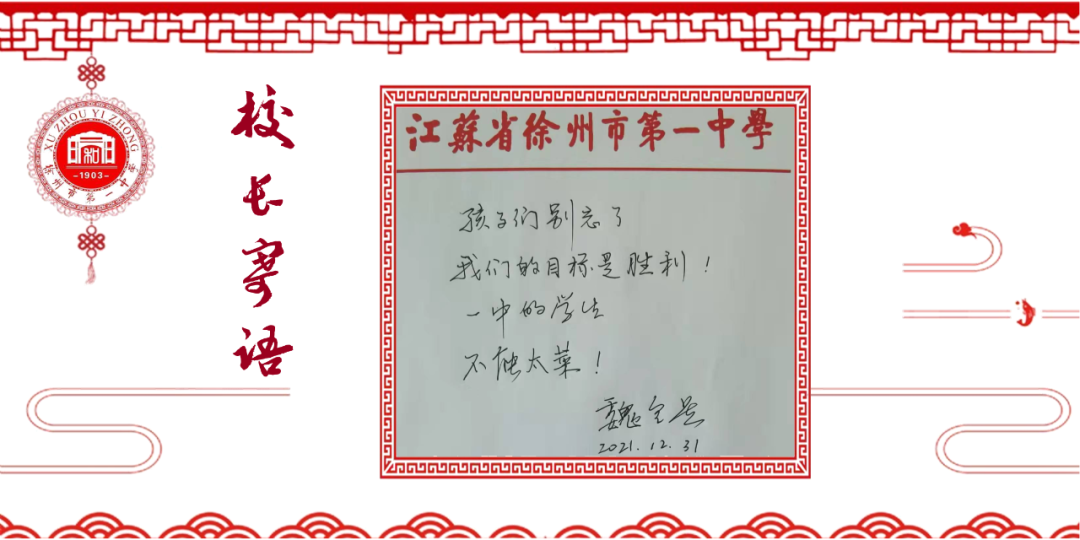 校长寄语
XU ZHOU YI ZHONG
1903
徐州市第一中学
江蘇省徐州市第一中學
孩子们别忘了
我们的目标是胜利！
一中的学生
不能太菜！
2021.12.31